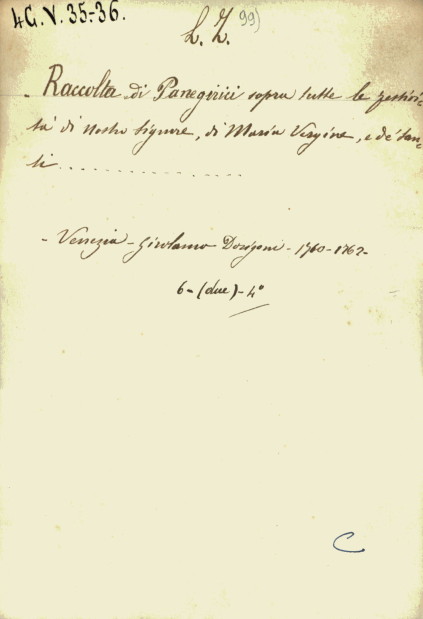 4G.V.35-36.
L. Z. 99)
Raccolta di Panegirici sopra tutte le festivi-
tà di nostro Signore, di Maria Vergine, e de' San-
ti . . . . . . . . . . . . . .
- Venezia - Girolamo Dorigoni - 1760-1762-
6 - (due) - 4°
C